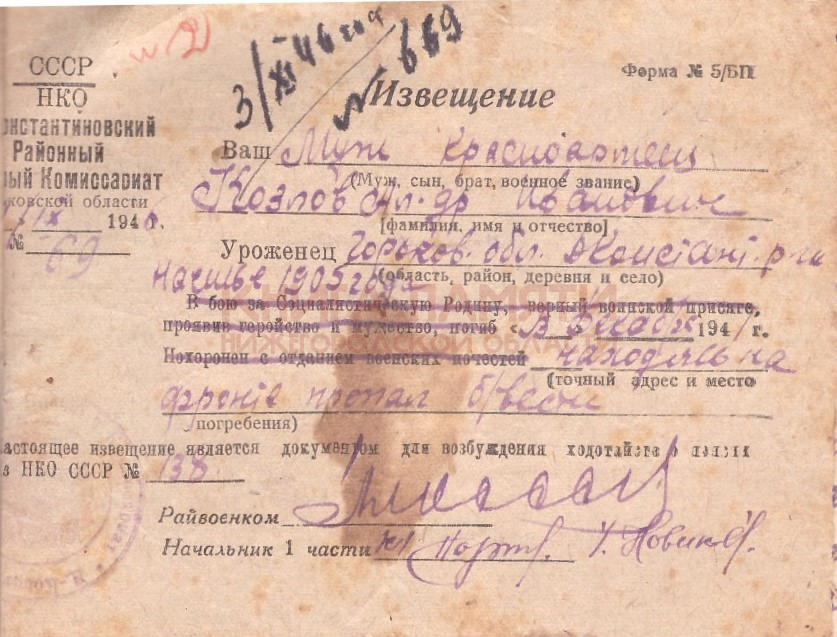 3/XI 46 года
№ 669
СССР
НКО
онстантиновский
Районный
ный Комиссариат
ковской области
IX 194 г.
№ 69
Форма № 5/БП
Извещение
Ваш Муж красноармеец
(Муж, сын, брат, военное звание)
Козлов Ал-др Иванович
[фамилия, имя и отчество]
Уроженец Горьков. обл. Д Констант. р-на
(область, район, деревня и село)
1905 года
В бою за Социалистическую Родину, верный воинской присяге,
проявив геройство и мужество, погиб « В Декабре 194 г.
ПАМЯТИ
НИЖЕГОРОДСКОЙ ОБЛАСТИ
Похоронен с отданием воинских почестей находясь на
(точный адрес и место
фронте пропал б/вести
погребения)
астоящее извещение является документом для возбуждения ходотайства о пенсии
з НКО СССР № 138
Райвоенком
Начальник 1 части